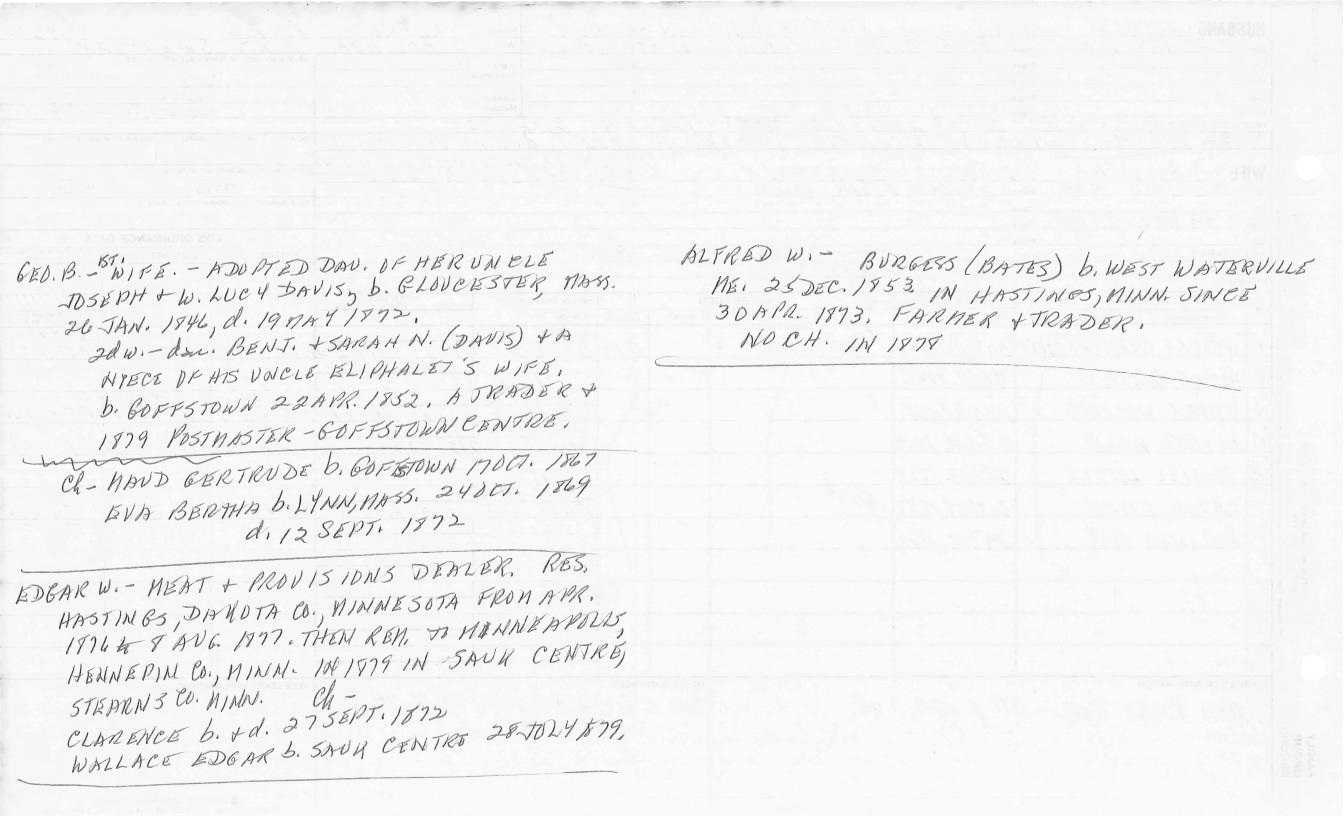 GEO. B. - 1ST. WIFE. - ADOPTED DAU. OF HER UNCLE
JOSEPH + W. LUCY DAVIS, b. GLOUCESTER, MASS.
26 JAN. 1846, d. 19 MAY 1872.
2d w. - dau. BENJ. + SARAH N. (DAVIS) + A
NIECE OF HIS UNCLE ELIPHALET'S WIFE.
b. GOFFSTOWN 22 APR. 1852. A TRADER +
1879 POSTMASTER - GOFFSTOWN CENTRE.
Ch - MAUD GERTRUDE b. GOFFSTOWN 17 OCT. 1867
EVA BERTHA b. LYNN, MASS. 24 OCT. 1869
d. 12 SEPT. 1872
EDGAR W. - MEAT + PROVISIONS DEALER. RES.
HASTINGS, DAKOTA CO., MINNESOTA FROM APR.
1876 to 8 AUG. 1877. THEN REM. TO MINNEAPOLIS,
HENNEPIN CO., MINN. IN 1879 IN SAUK CENTRE,
STEARNS CO. MINN. Ch -
CLARENCE b. + d. 27 SEPT. 1872
WALLACE EDGAR b. SAUK CENTRE 28 JULY 1879.
ALFRED W. - BURGESS (BATES) b. WEST WATERVILLE
ME. 25 DEC. 1853 IN HASTINGS, MINN. SINCE
30 APR. 1873. FARMER + TRADER.
NO CH. IN 1878